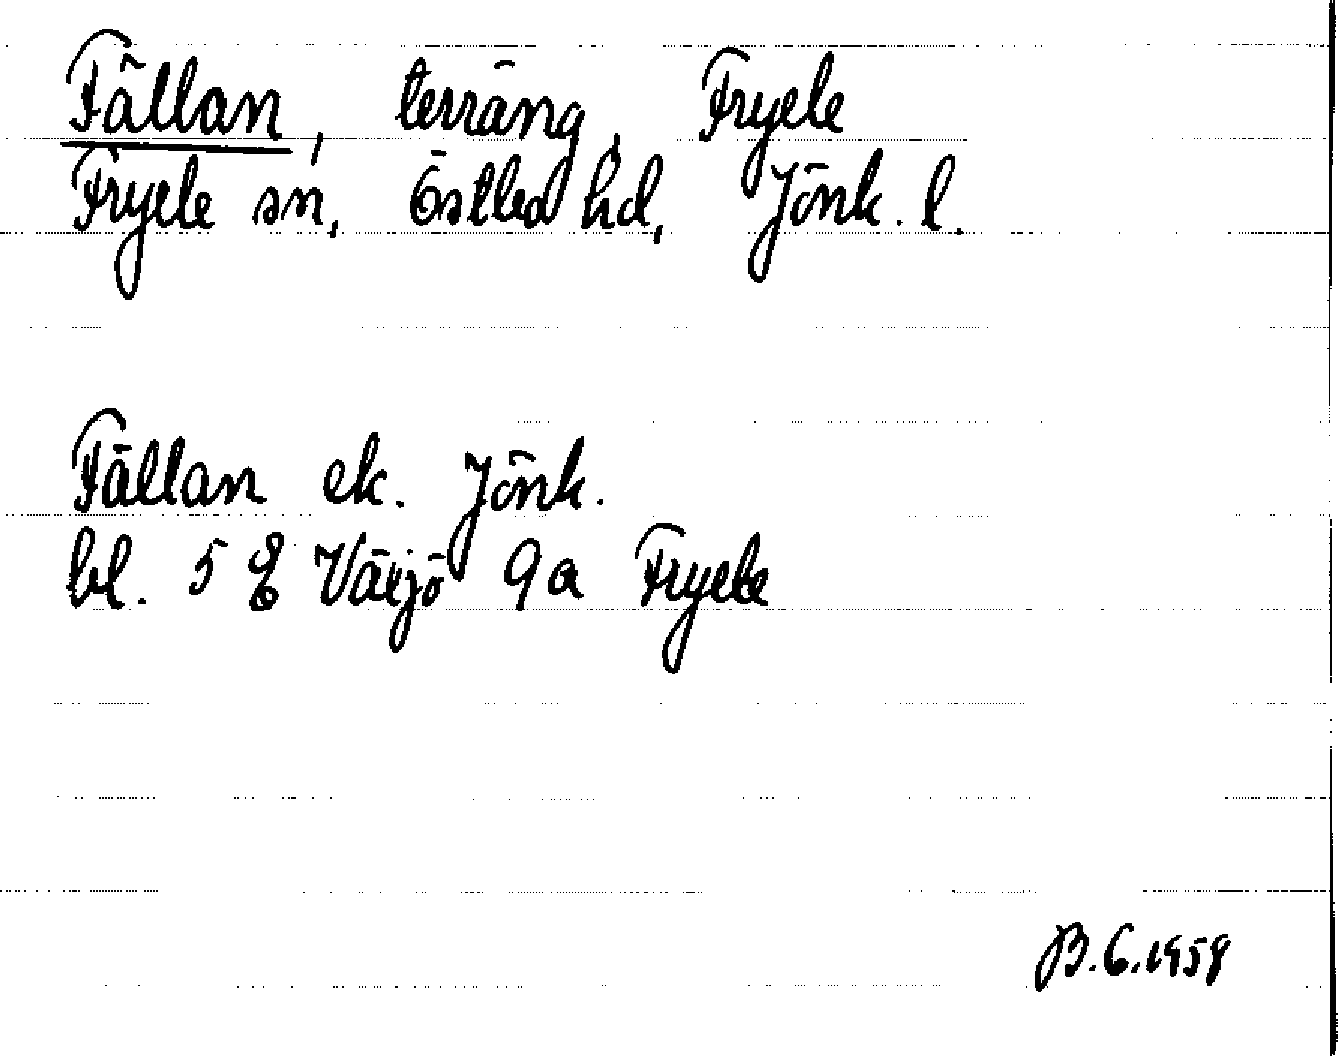 Fällan, terräng, Fryele
Fryele sn, Östbo hd, Jönk. l.
Fällan ek. Jönk.
bl. 5 E Växjö 9a Fryele
B.G.1958